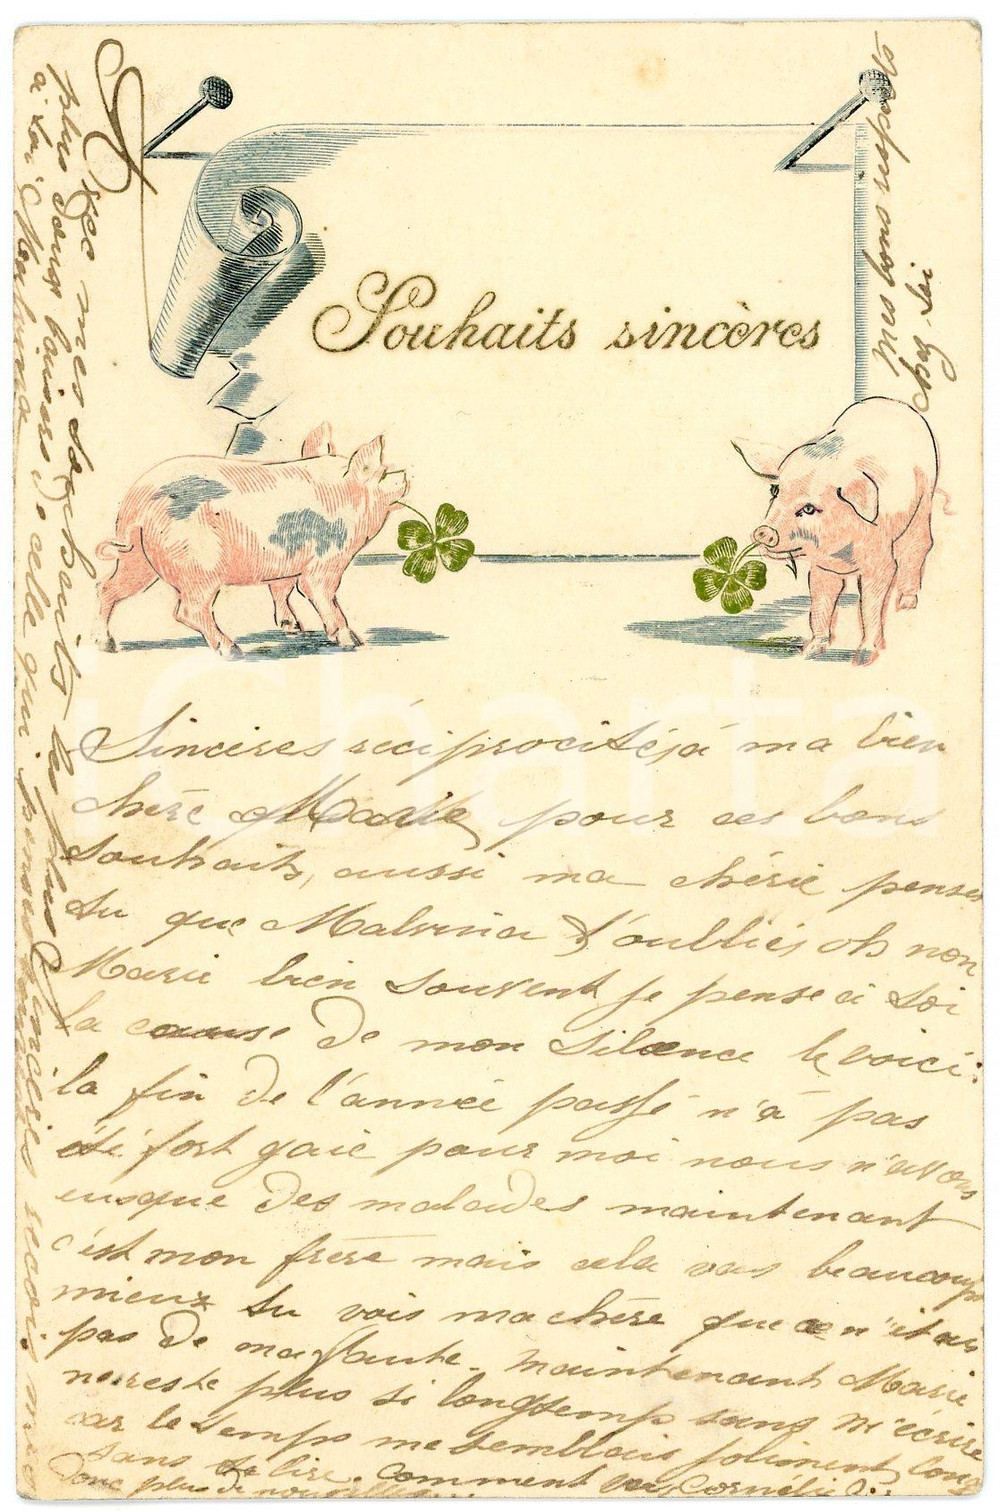 Souhaits sincères
Sincères réciprocité, à ma bien
chère Marie pour ces bons
souhaits, aussi ma chérie penses
tu que Malvina t'oublies oh non
Marie bien souvent je pense à toi
la cause de mon silence le voici:
la fin de l'année passé n'à pas
été fort gaie pour moi nous n'avons
eusque des malades maintenant
c'est mon frère mais cela vas beaucoup
mieux tu vois ma chère que ce n'étais
pas de ma faute. maintenant Marie
ne reste plus si longtemps sans m'écrire
car le temps me semblais joliment long
sans te lire. Comment vas Cornélie.
Donc plus de nouvelles
Avec mes souhaits les plus sincères
plus doux baisers de celle qui pense
à toi Malvina
Mes bons respects
chez-toi
iCharta